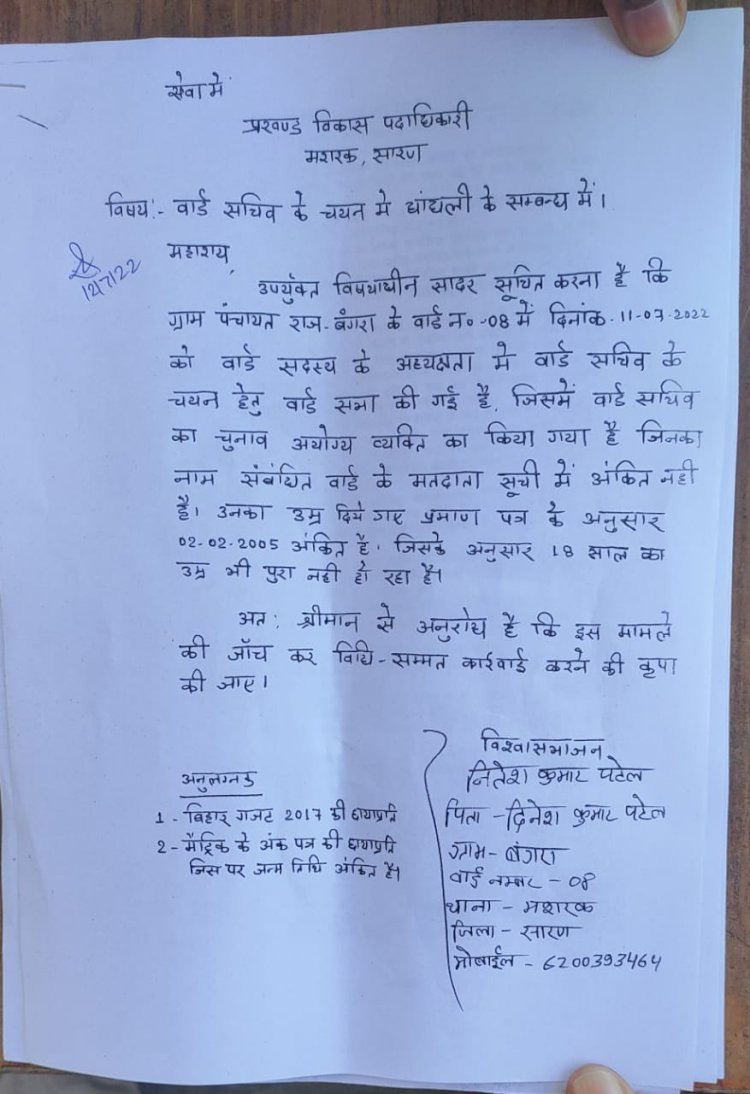 सेवा में
प्रखण्ड विकास पदाधिकारी
मशरक, सारण
विषय:- वार्ड सचिव के चयन मे धांधली के सम्बन्ध में।
महाशय,
12/7/22
उपर्युक्त विषयाधीन सादर सूचित करना है कि
ग्राम पंचायत राज-बंगरा के वार्ड न०-08 में दिनांक-11-07-2022
को वार्ड सदस्य के अध्यक्षता मे वार्ड सचिव के
चयन हेतु वार्ड सभा की गई है, जिसमें वार्ड सचिव
का चुनाव अयोग्य व्यक्ति का किया गया है जिनका
नाम संबंधित वार्ड के मतदाता सूची में अंकित नही
है। उनका उम्र दिये गए प्रमाण पत्र के अनुसार
02-02-2005 अंकित है। जिसके अनुसार 18 साल का
उम्र भी पुरा नही हो रहा है।
अत: श्रीमान से अनुरोध है कि इस मामले
की जाँच कर विधि-सम्मत कार्रवाई करने की कृपा
की जाए।
विश्वासभाजन
नितेश कुमार पटेल
पिता - दिनेश कुमार पटेल
ग्राम- बंगरा
वार्ड नम्बर - 08
थाना - मशरक
जिला - सारण
मोबाईल - 6200393464
अनुलग्नक
1 - बिहार गजट 2017 की छायाप्रति
2 - मैट्रिक के अंक पत्र की छायाप्रति
जिस पर जन्म तिथि अंकित है।